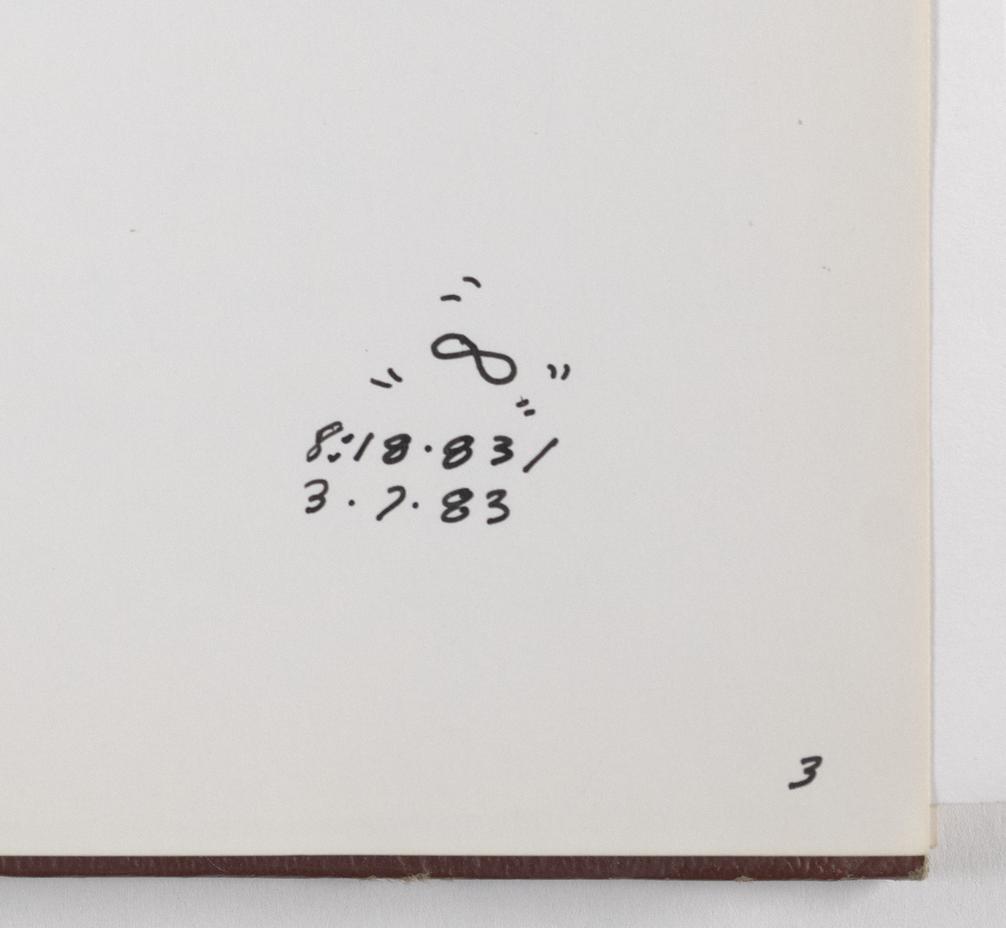 ∞
8:18.83/
3.7.83
3